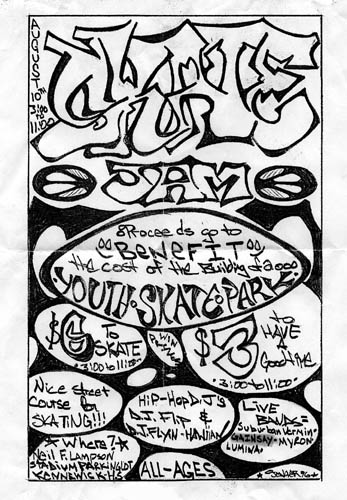 AUGUST
10TH
3:00 TO
11:00
JAM
PROCEEDS go to
"BENEFIT"
the cost of the Building of a
YOUTH SKATE PARK.
$6 To
SKATE
3:00 to 11:00
WIN
$3 to
HAVE
A
Good time
3:00 to 11:00
Nice street
Course 4
SKATING!!!
HIP-HOP DJ'S
D.J. FLIP &
D.J. FLYN-HAWIIAN
LIVE
BANDS=
Suburban Vermin
GAINSAY-MYRON
LUMINA.
*Where?*
Neil F. LAMPSON
STADIUM PARKING LOT
KENNEWICK H.S.
ALL-AGES